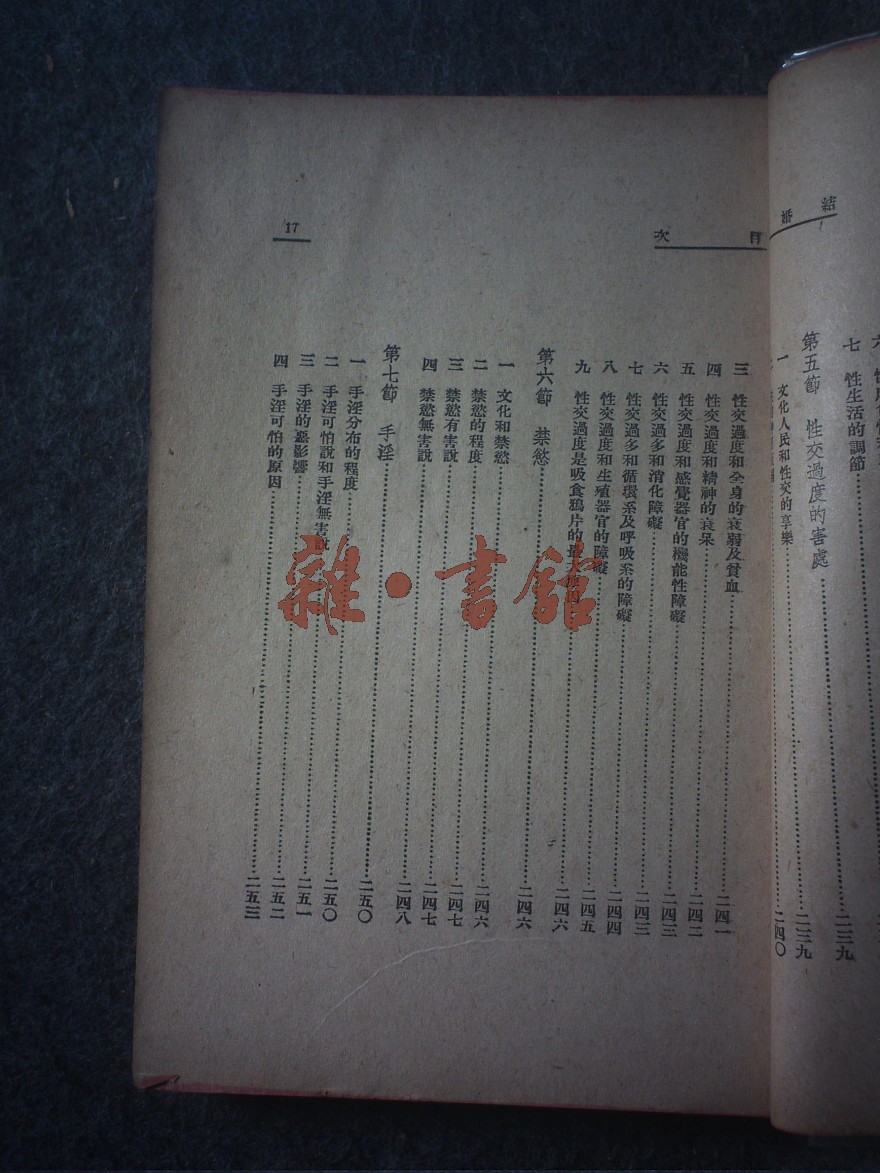 結婚
七　性生活的調節……二三九
第五節　性交過度的害處……二三九
一　文化人民和性交的享樂……二四〇
目次
三　性交過度和全身的衰弱及貧血……二四一
四　性交過度和精神的衰呆……二四二
五　性交過度和感覺器官的機能性障礙……二四三
六　性交過多和消化障礙……二四三
七　性交過多和循環系及呼吸系的障礙……二四四
八　性交過度和生殖器官的障礙……二四五
九　性交過度是吸食鴉片的最大……二四六
第六節　禁慾……二四六
一　文化和禁慾……二四六
二　禁慾的程度……二四七
三　禁慾有害說……二四七
四　禁慾無害說……二四八
第七節　手淫……二五〇
一　手淫分布的程度……二五〇
二　手淫可怕說和手淫無害說……二五一
三　手淫的惡影響……二五二
四　手淫可怕的原因……二五三
17
雜·書館